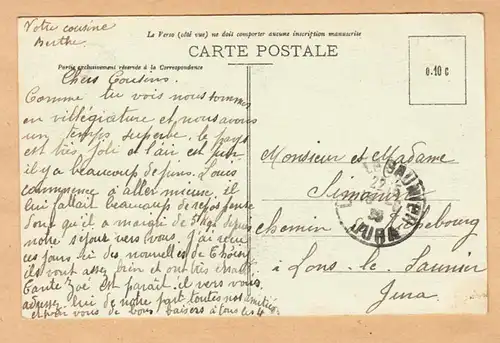 Votre cousine
Berthe
Le Verso (côté vue) ne doit comporter aucune inscription manuscrite
CARTE POSTALE
Partie exclusivement réservée à la Correspondance
0.10 c
Chers Cousins.
Comme tu vois nous sommes
en villégiature et nous avons
un temps superbe. le pays
est très joli et l'air est pur
il y a beaucoup de pins. Louis
commence à aller mieux, il
lui fallait beaucoup de repos
qu'il a maigri de 5 kgs depuis
notre séjour vers vous. J'ai reçu
ces jours ici des nouvelles de Choisy
ils vont assez bien et ont très chaud
tante Zoé est parait-il vers vous
lui de notre part toutes nos amitiés
et pour vous de bons baisers à tous les 4
Monsieur et Madame
Simonin
chemin
à Lons-le-Saunier
Jura
JURA